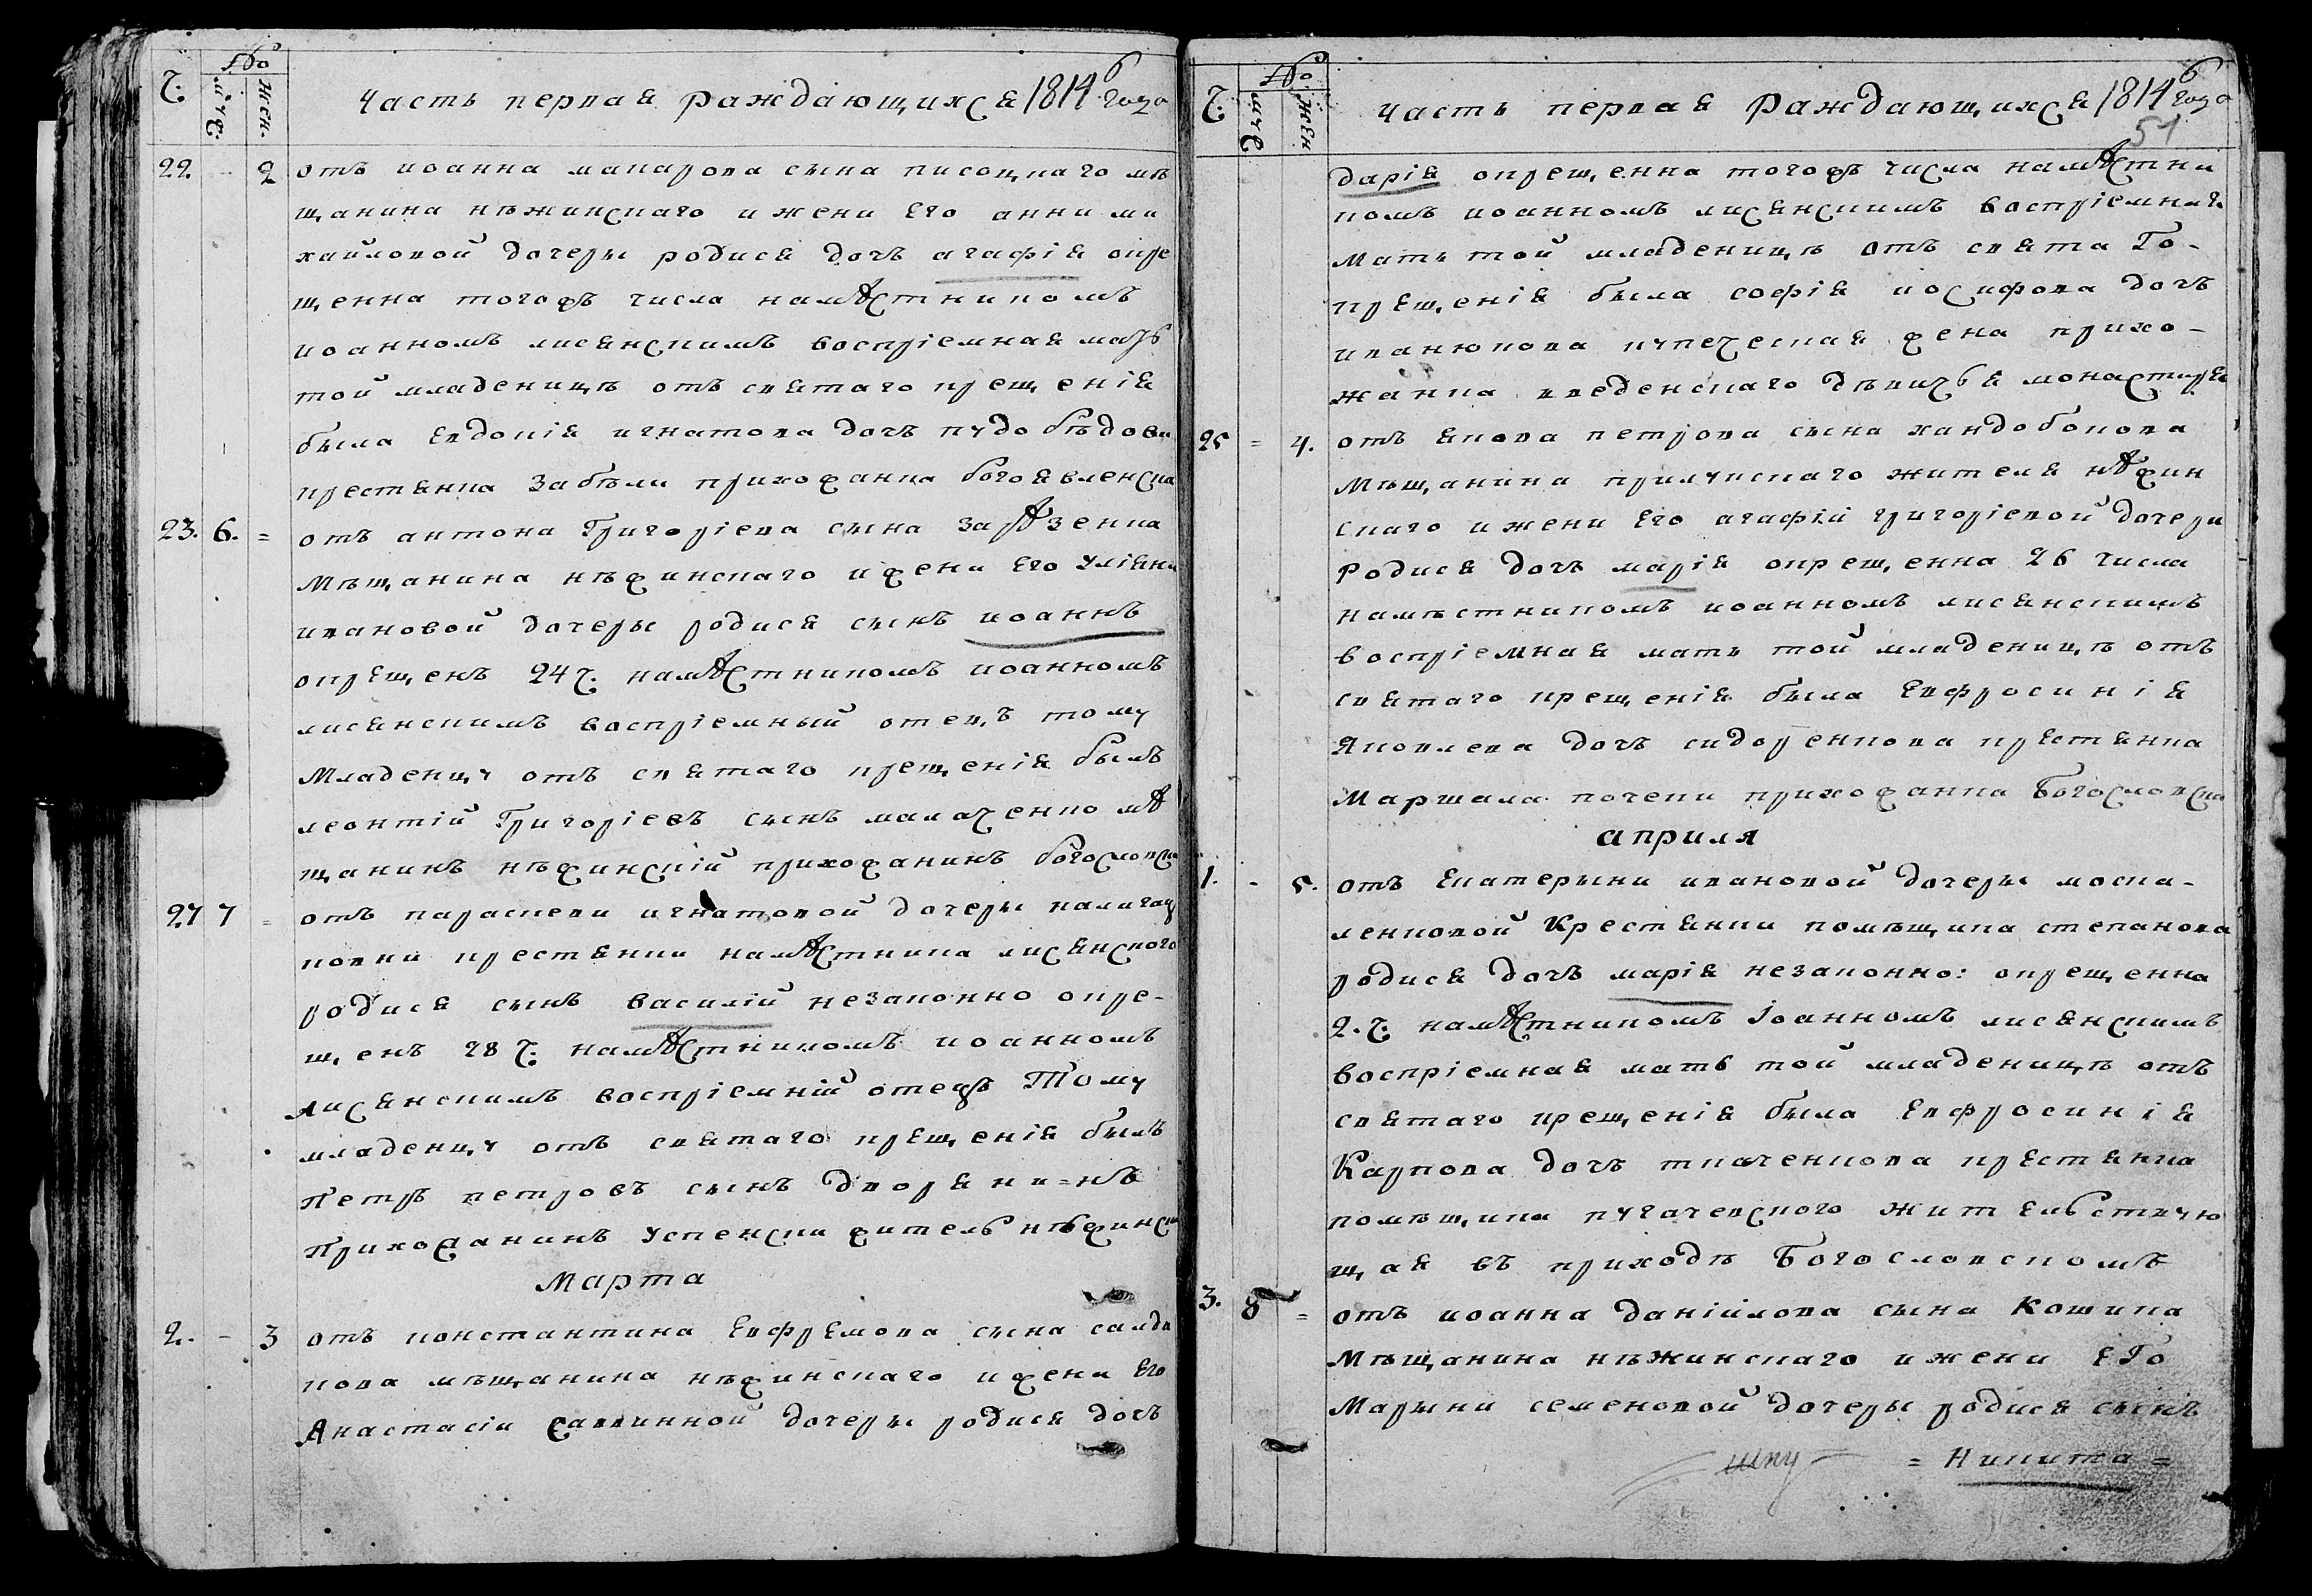 Ч. № муч. жен. Часть первая раждающихся 1814 года
22. - 2 отъ иоанна макарова сына писоцкаго мѣ
щанина нѣжинскаго и жени Его анни ми
хайловой дочеры родися дочъ агафія окре
щенна тогожъ числа намѣстникомъ
иоанномъ лисянскимъ воспріемная мать
той младеницѣ отъ святаго крещенія
была Евдокія игнатова дочъ
крестянка Забѣли прихожанка богоявленска
23. 6. = отъ антона Григоріева сына
Мѣщанина нѣжинскаго и жени Его Уліяни
ивановой дочеры родися сынъ иоаннъ
окрещенъ 24 ч. намѣстникомъ иоанномъ
лисянскимъ воспріемный отецъ тому
Младенцу отъ святаго крещенія былъ
леонтій Григоріевъ сынъ малаченко мѣ
щанинъ нѣжинскій прихожанинъ богословски
27 7 = отъ параскеви игнатовой дочеры
ковни крестянки намѣстника лисянского
родися сынъ василій незаконно окре-
щенъ 28 ч. намѣстникомъ иоанномъ
лисянскимъ воспріемній отецъ Тому
младенцу отъ святаго крещенія былъ
Петръ петровъ сынъ дворяни=нъ
Прихожанинъ Успенски житель нѣжински
Марта
2. - 3 отъ константина Евфремова сына салди
кова мѣщанина нѣжинскаго и жени Его
Анастасіи Саввинной дочеры родися дочъ
Ч. № муче жен часть первая Раждающихся 1814 года
51
дарія окрещенна тогожъ числа намѣстни
комъ иоанномъ лисянскимъ воспріемная
Мать той младеницѣ отъ свята Го-
крещенія была софія иосифова дочъ
иванюкова купеческая жена прихо-
жанка введенскаго дѣвичья монастиря
25 = 4. отъ якова петрова сына хандобокова
Мѣщанина прилуцкаго жителя нѣжин
скаго и жени Его агафіи григоріевой дочери
родися дочъ марія окрещенна 26 числа
намѣстникомъ иоанномъ лисянскимъ
воспріемная мать той младеницѣ отъ
святаго крещенія была Евфросинія
Яковлева дочъ сидоренкова крестянка
Маршала почеки прихожанка Богословска
априля
1. - 5. отъ Екатерыни ивановой дочеры моска-
ленковой Крестянки помѣщика степанова
родися дочъ марія незаконно: окрещенна
2. ч. намѣстникомъ Іоанномъ лисянскимъ
воспріемная мать той младеницѣ отъ
святаго крещенія была Евфросинія
Карпова дочъ ткаченкова крестянка
помѣщика пугачевского жительствую
щая въ приходѣ Богословскомъ
3. 8 = отъ иоанна даніилова сына Кошика
Мѣщанина нѣжинскаго и жени ЕГо
Марыни семеновой дочеры родися сынъ
= Никита =